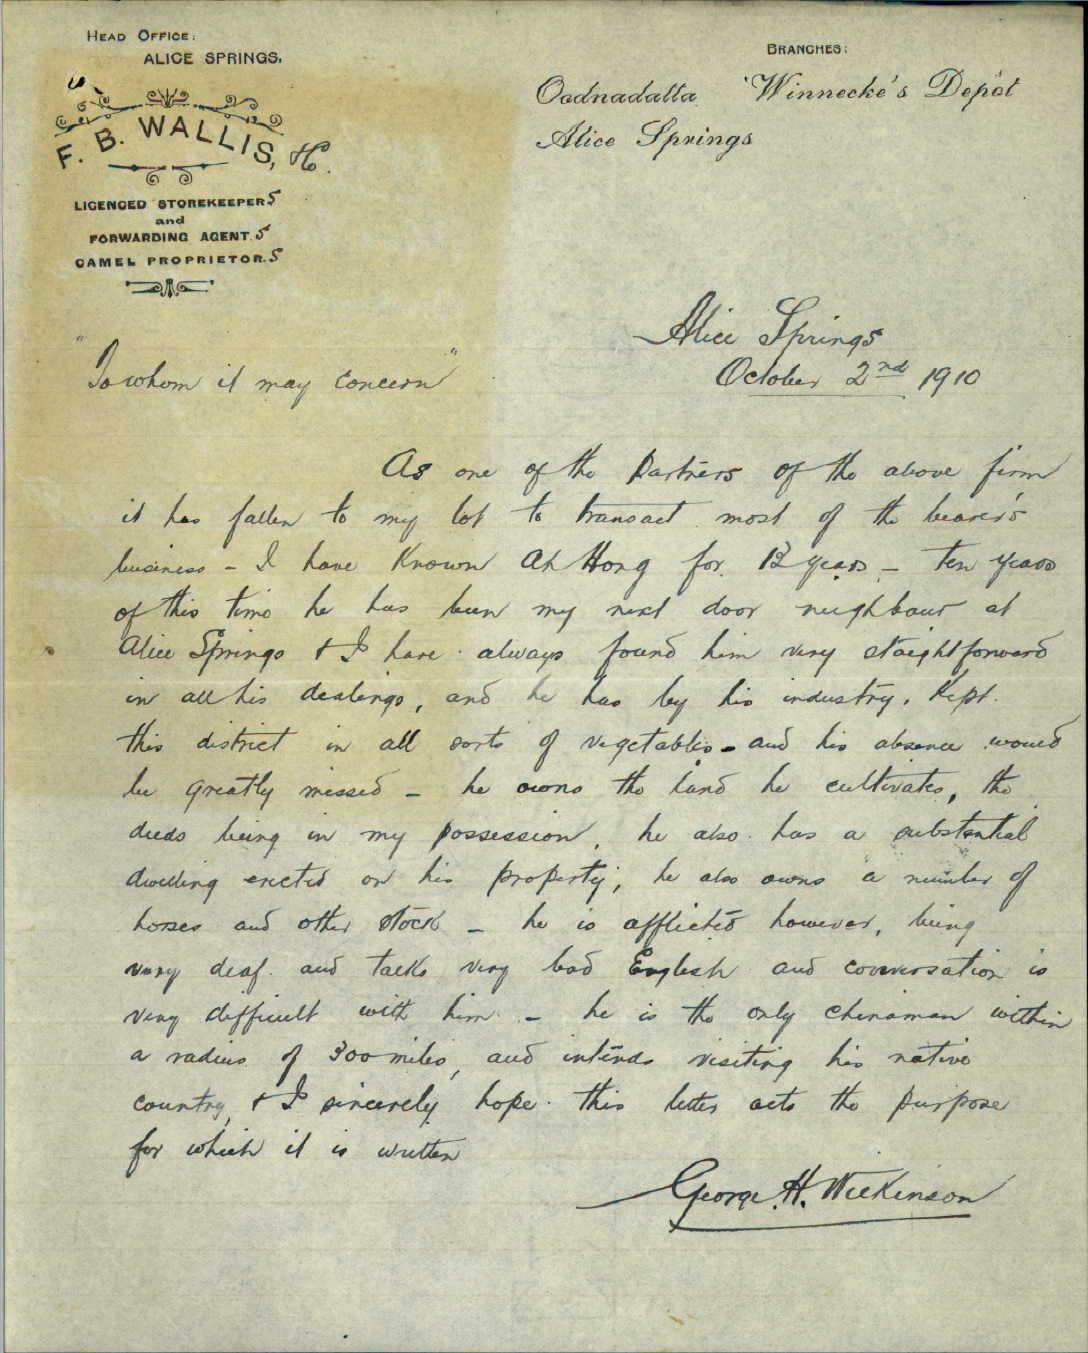 HEAD OFFICE:
ALICE SPRINGS.
F. B. WALLIS, & Co.
LICENCED STOREKEEPERS
and
FORWARDING AGENTS
CAMEL PROPRIETORS
BRANCHES:
Oodnadatta Winnecke's Depôt
Alice Springs
Alice Springs
October 2nd 1910
"To whom it may concern"
As one of the Partners of the above firm
it has fallen to my lot to transact most of the bearer's
business - I have Known Ah Hong for 12 years - ten years
of this time he has been my next door neighbour at
Alice Springs & I have always found him very staightforward
in all his dealings, and he has by his industry, Kept
this district in all sorts of vegetables - and his absence would
be greatly missed - he owns the land he cultivates, the
deeds being in my possession, he also has a substantial
dwelling erected on his property, he also owns a number of
horses and other stock - he is afflicted however, being
very deaf and talks very bad English and conversation is
very difficult with him - he is the only chinaman within
a radius of 300 miles, and intends visiting his native
country, & I sincerely hope this letter acts the purpose
for which it is written
George H. Wilkinson